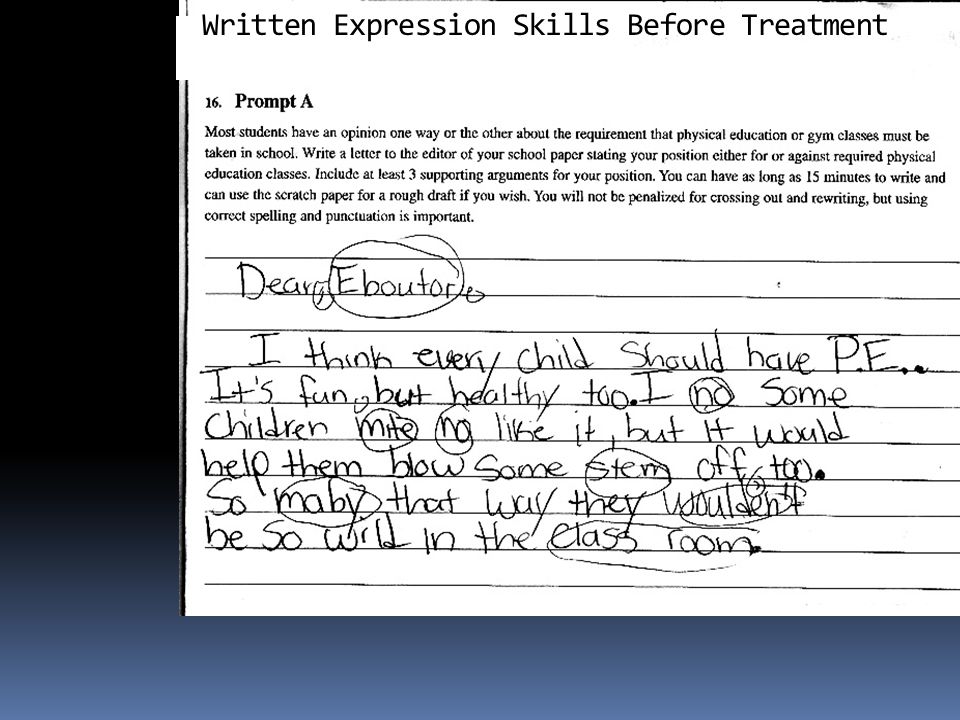 Written Expression Skills Before Treatment
16. Prompt A
Most students have an opinion one way or the other about the requirement that physical education or gym classes must be
taken in school. Write a letter to the editor of your school paper stating your position either for or against required physical
education classes. Include at least 3 supporting arguments for your position. You can have as long as 15 minutes to write and
can use the scratch paper for a rough draft if you wish. You will not be penalized for crossing out and rewriting, but using
correct spelling and punctuation is important.
Dear, Eboutor,
I think every child should have P.E..
It's fun, but healthy too. I no some
children mite no like it, but it would
help them blow some stem off, too.
So maby that way they woulden't
be so wild in the class room.